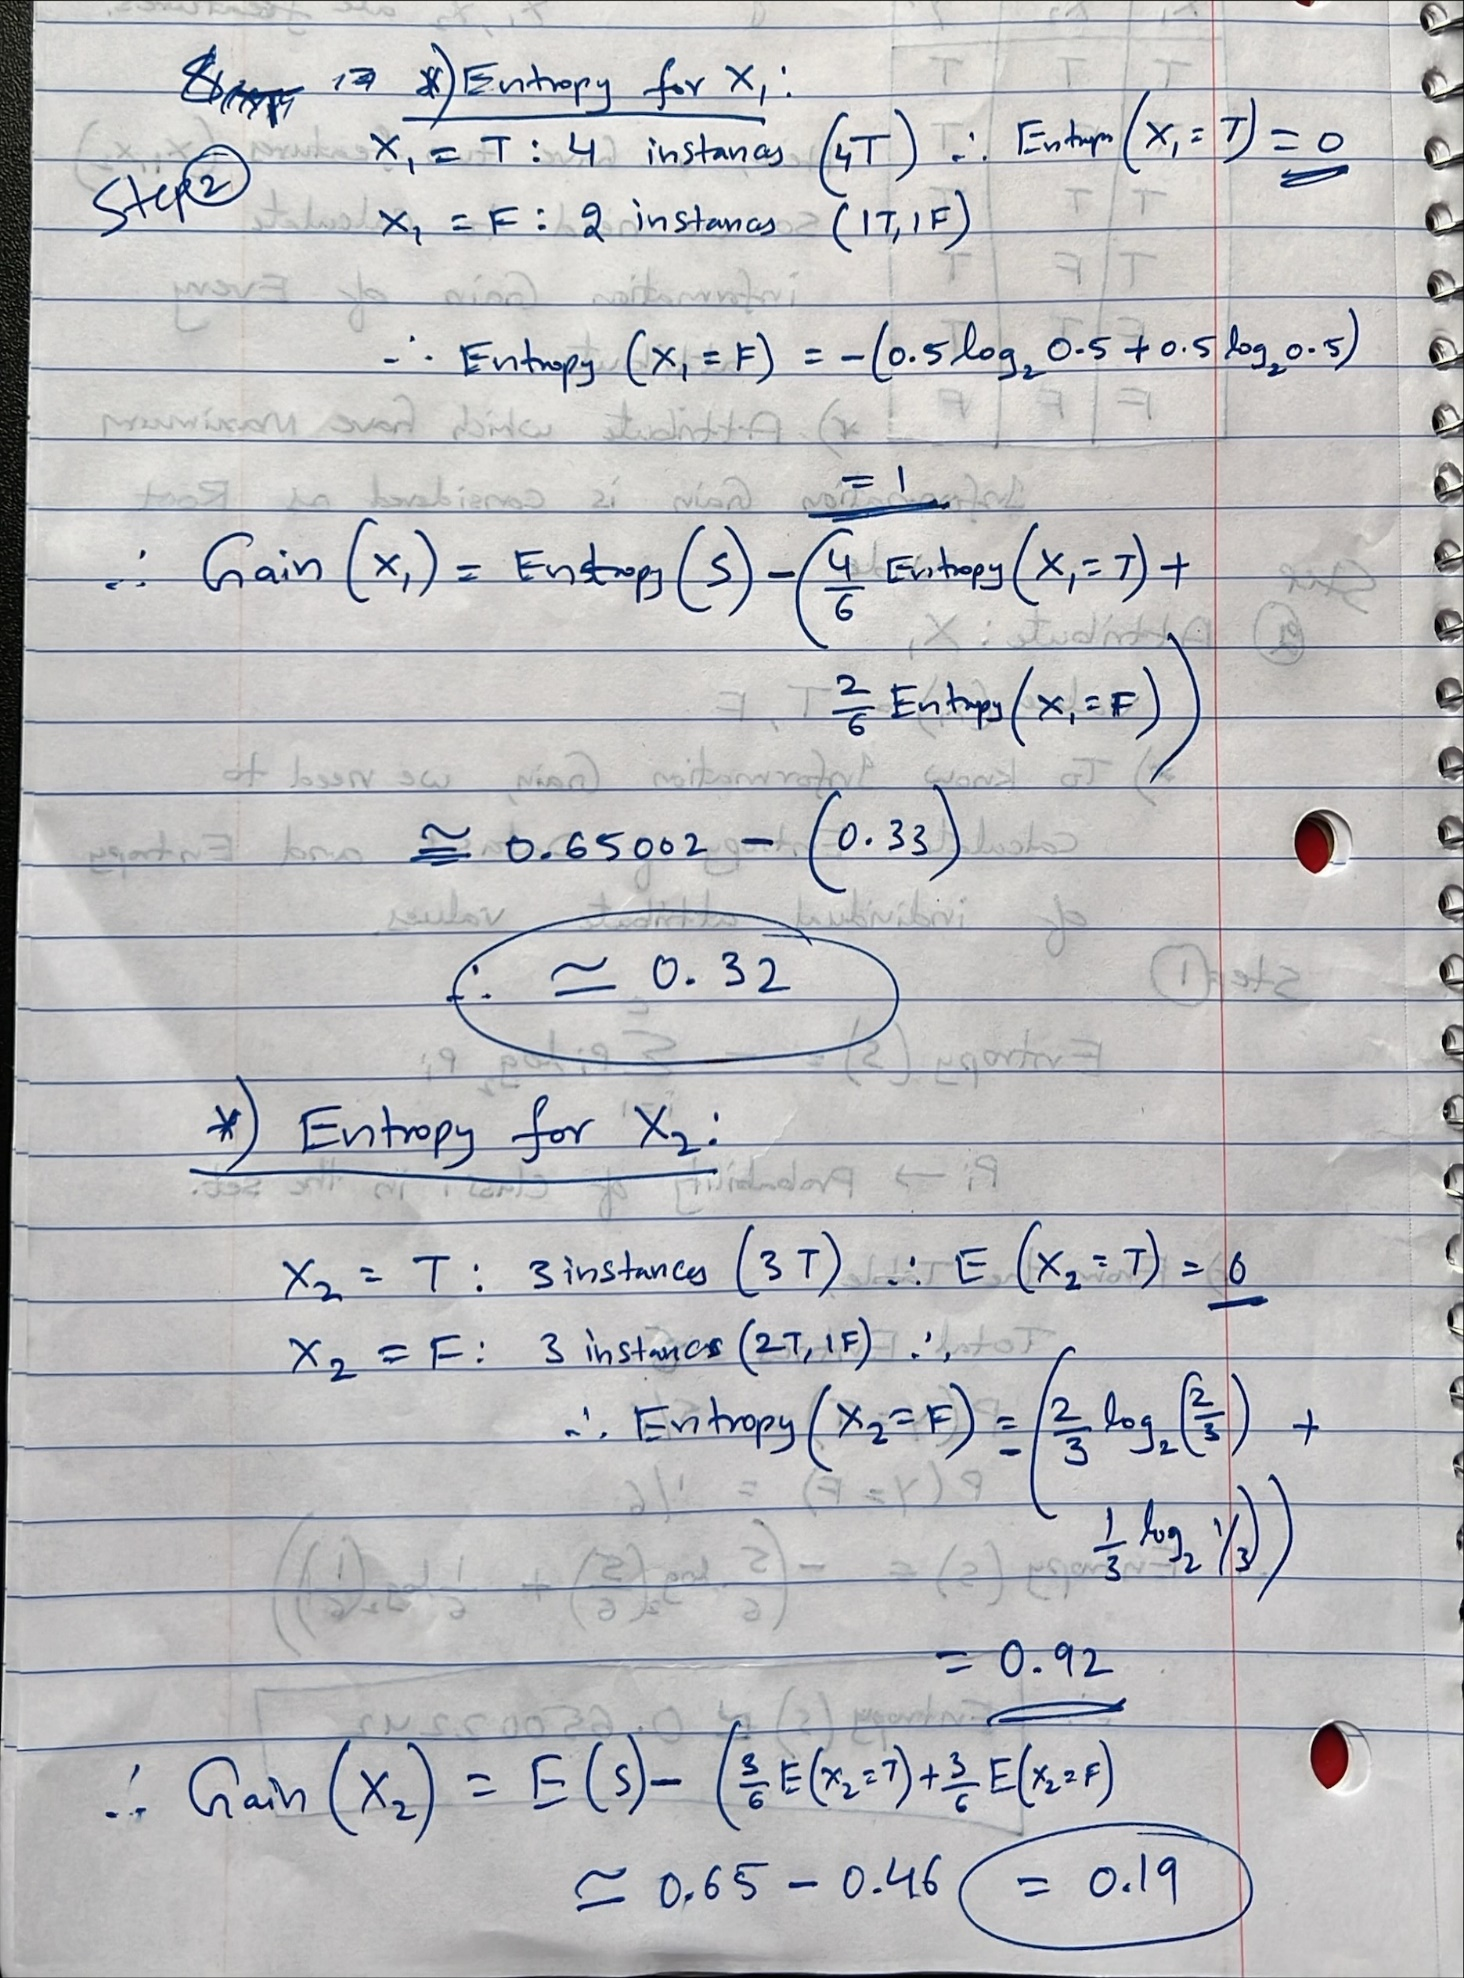 *) Entropy for X₁:
Step ② X₁ = T : 4 instances (4T) ∴ Entropy (X₁ = T) = 0
X₁ = F : 2 instances (1T, 1F)
∴ Entropy (X₁ = F) = -(0.5 log₂ 0.5 + 0.5 log₂ 0.5)
= 1
∴ Gain (X₁) = Entropy (S) - (4/6 Entropy (X₁ = T) +
2/6 Entropy (X₁ = F))
≅ 0.65002 - (0.33)
∴ ≃ 0.32
*) Entropy for X₂:
X₂ = T : 3 instances (3T) ∴ E (X₂ = T) = 0
X₂ = F : 3 instances (2T, 1F) ∴
∴ Entropy (X₂ = F) = -(2/3 log₂ (2/3) +
1/3 log₂ 1/3))
= 0.92
∴ Gain (X₂) = E (S) - (3/6 E (X₂ = T) + 3/6 E (X₂ = F)
≃ 0.65 - 0.46 = 0.19